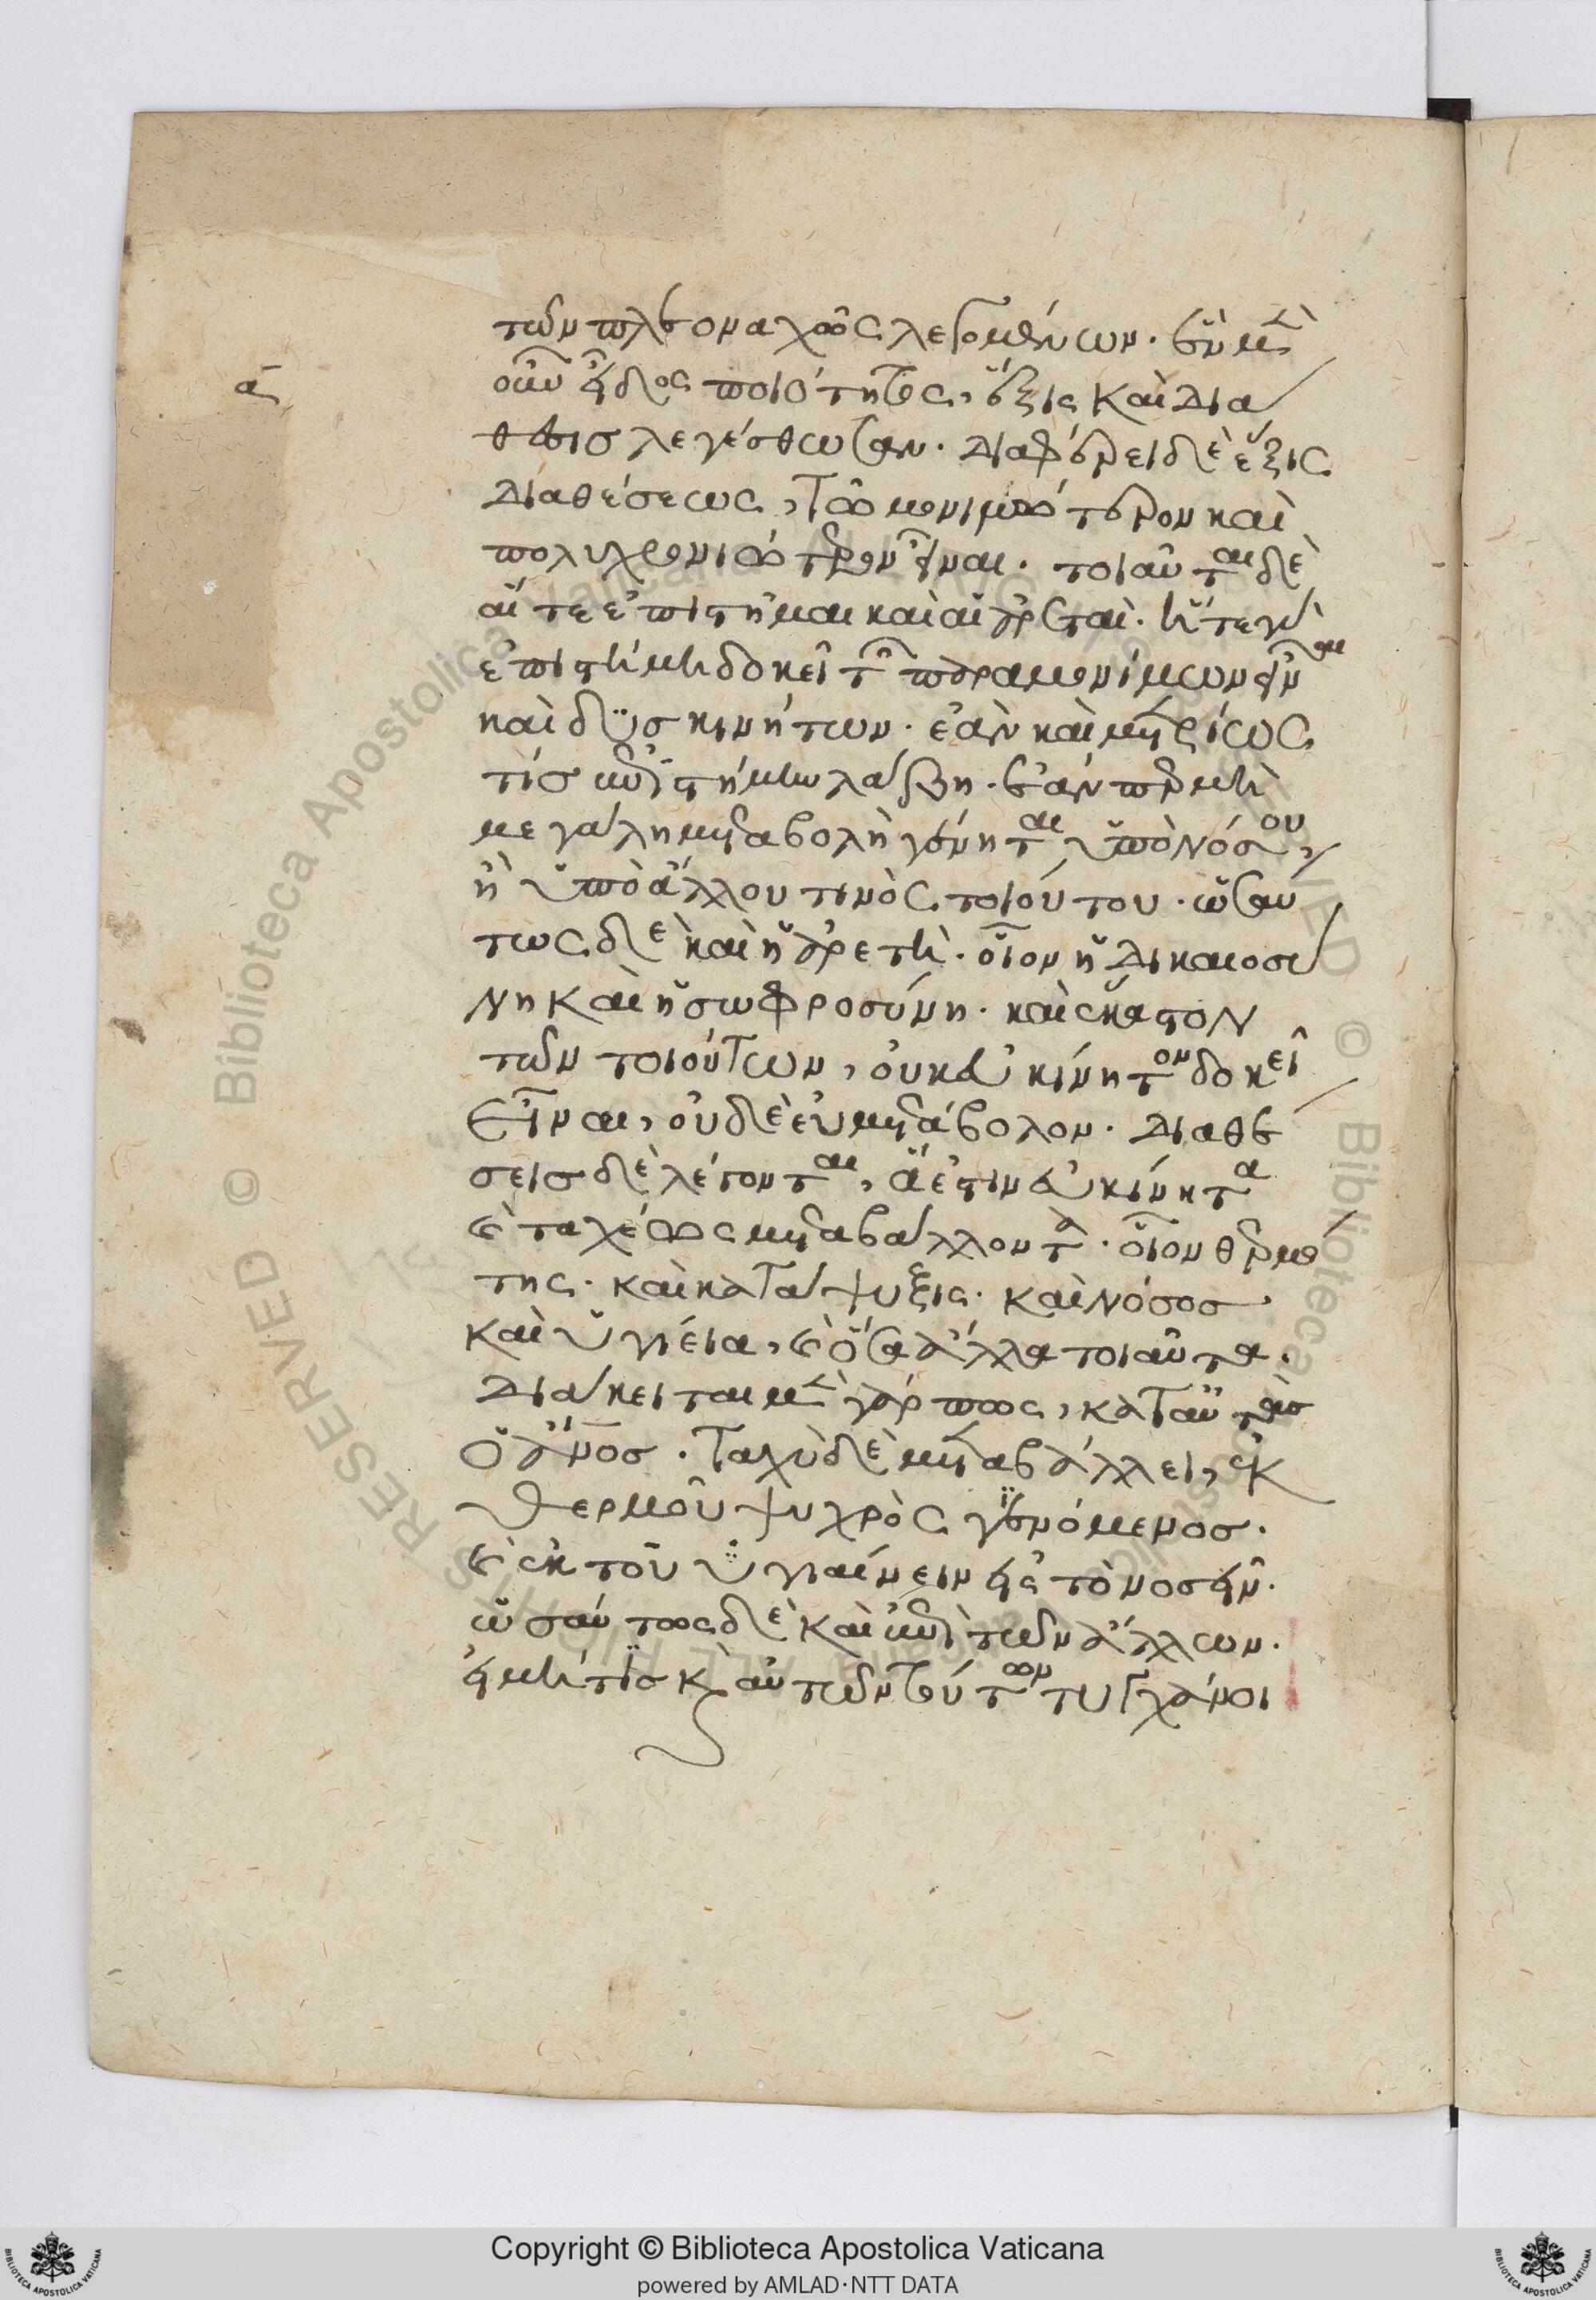 τῶν πλεοναχῶς λεγομένων. ἓν μὲν
α᾽
οὖν εἶδος ποιότητος, ἕξις καὶ διά
θεσις λεγέσθωσαν. διαφέρει δὲ ἕξις
διαθέσεως, τῶ μονιμώτερον καὶ
πολυχρονιώτερον εἶναι. τοιαῦται δὲ
αἵ τε ἐπιστῆμαι καὶ αἱ ἀρεταί. ἥ τε γὰρ
ἐπιστήμη δοκεῖ τῶν παραμονίμων εἶναι
καὶ δυσκινήτων. ἐὰν καὶ μετρίως
τίς ἐπιστήμην λάβη. ἐάν περ μὴ
μεγάλη μεταβολὴ γένηται ὑπὸ νόσου,
ἢ ὑπὸ ἄλλου τινὸς τοιούτου. ὡσαύ
τως δὲ καὶ ἡ ἀρετή. οἷον ἡ δικαιοσύ
νη καὶ ἡ σωφροσύνη. καὶ ἕκαστον
τῶν τοιούτων, οὐκ εὐκίνητον δοκεῖ
εἶναι, οὐδὲ εὐμετάβολον. διαθέ
σεις δὲ λέγονται, ἅ ἐστιν εὐκίνητα
καὶ ταχέως μεταβάλλοντα. οἷον θερμό
της. καὶ κατάψυξις. καὶ νόσος
καὶ ὑγιεία, καὶ ὅσα ἄλλα τοιαῦτα.
διάκειται μὲν γάρ πως, κατὰ ταύτας
ὁ ἄνος. ταχὺ δὲ μεταβάλλει, ἐκ
θερμοῦ ψυχρὸς γενόμενος.
καὶ ἐκ τοῦ ὑγιαίνειν εἰς τὸ νοσεῖν.
ὡσαύτως δὲ καὶ ἐπὶ τῶν ἄλλων.
εἰ μή τις καὶ αὐτῶν τούτων τυγχάνοι
Copyright © Biblioteca Apostolica Vaticana
powered by AMLAD·NTT DATA